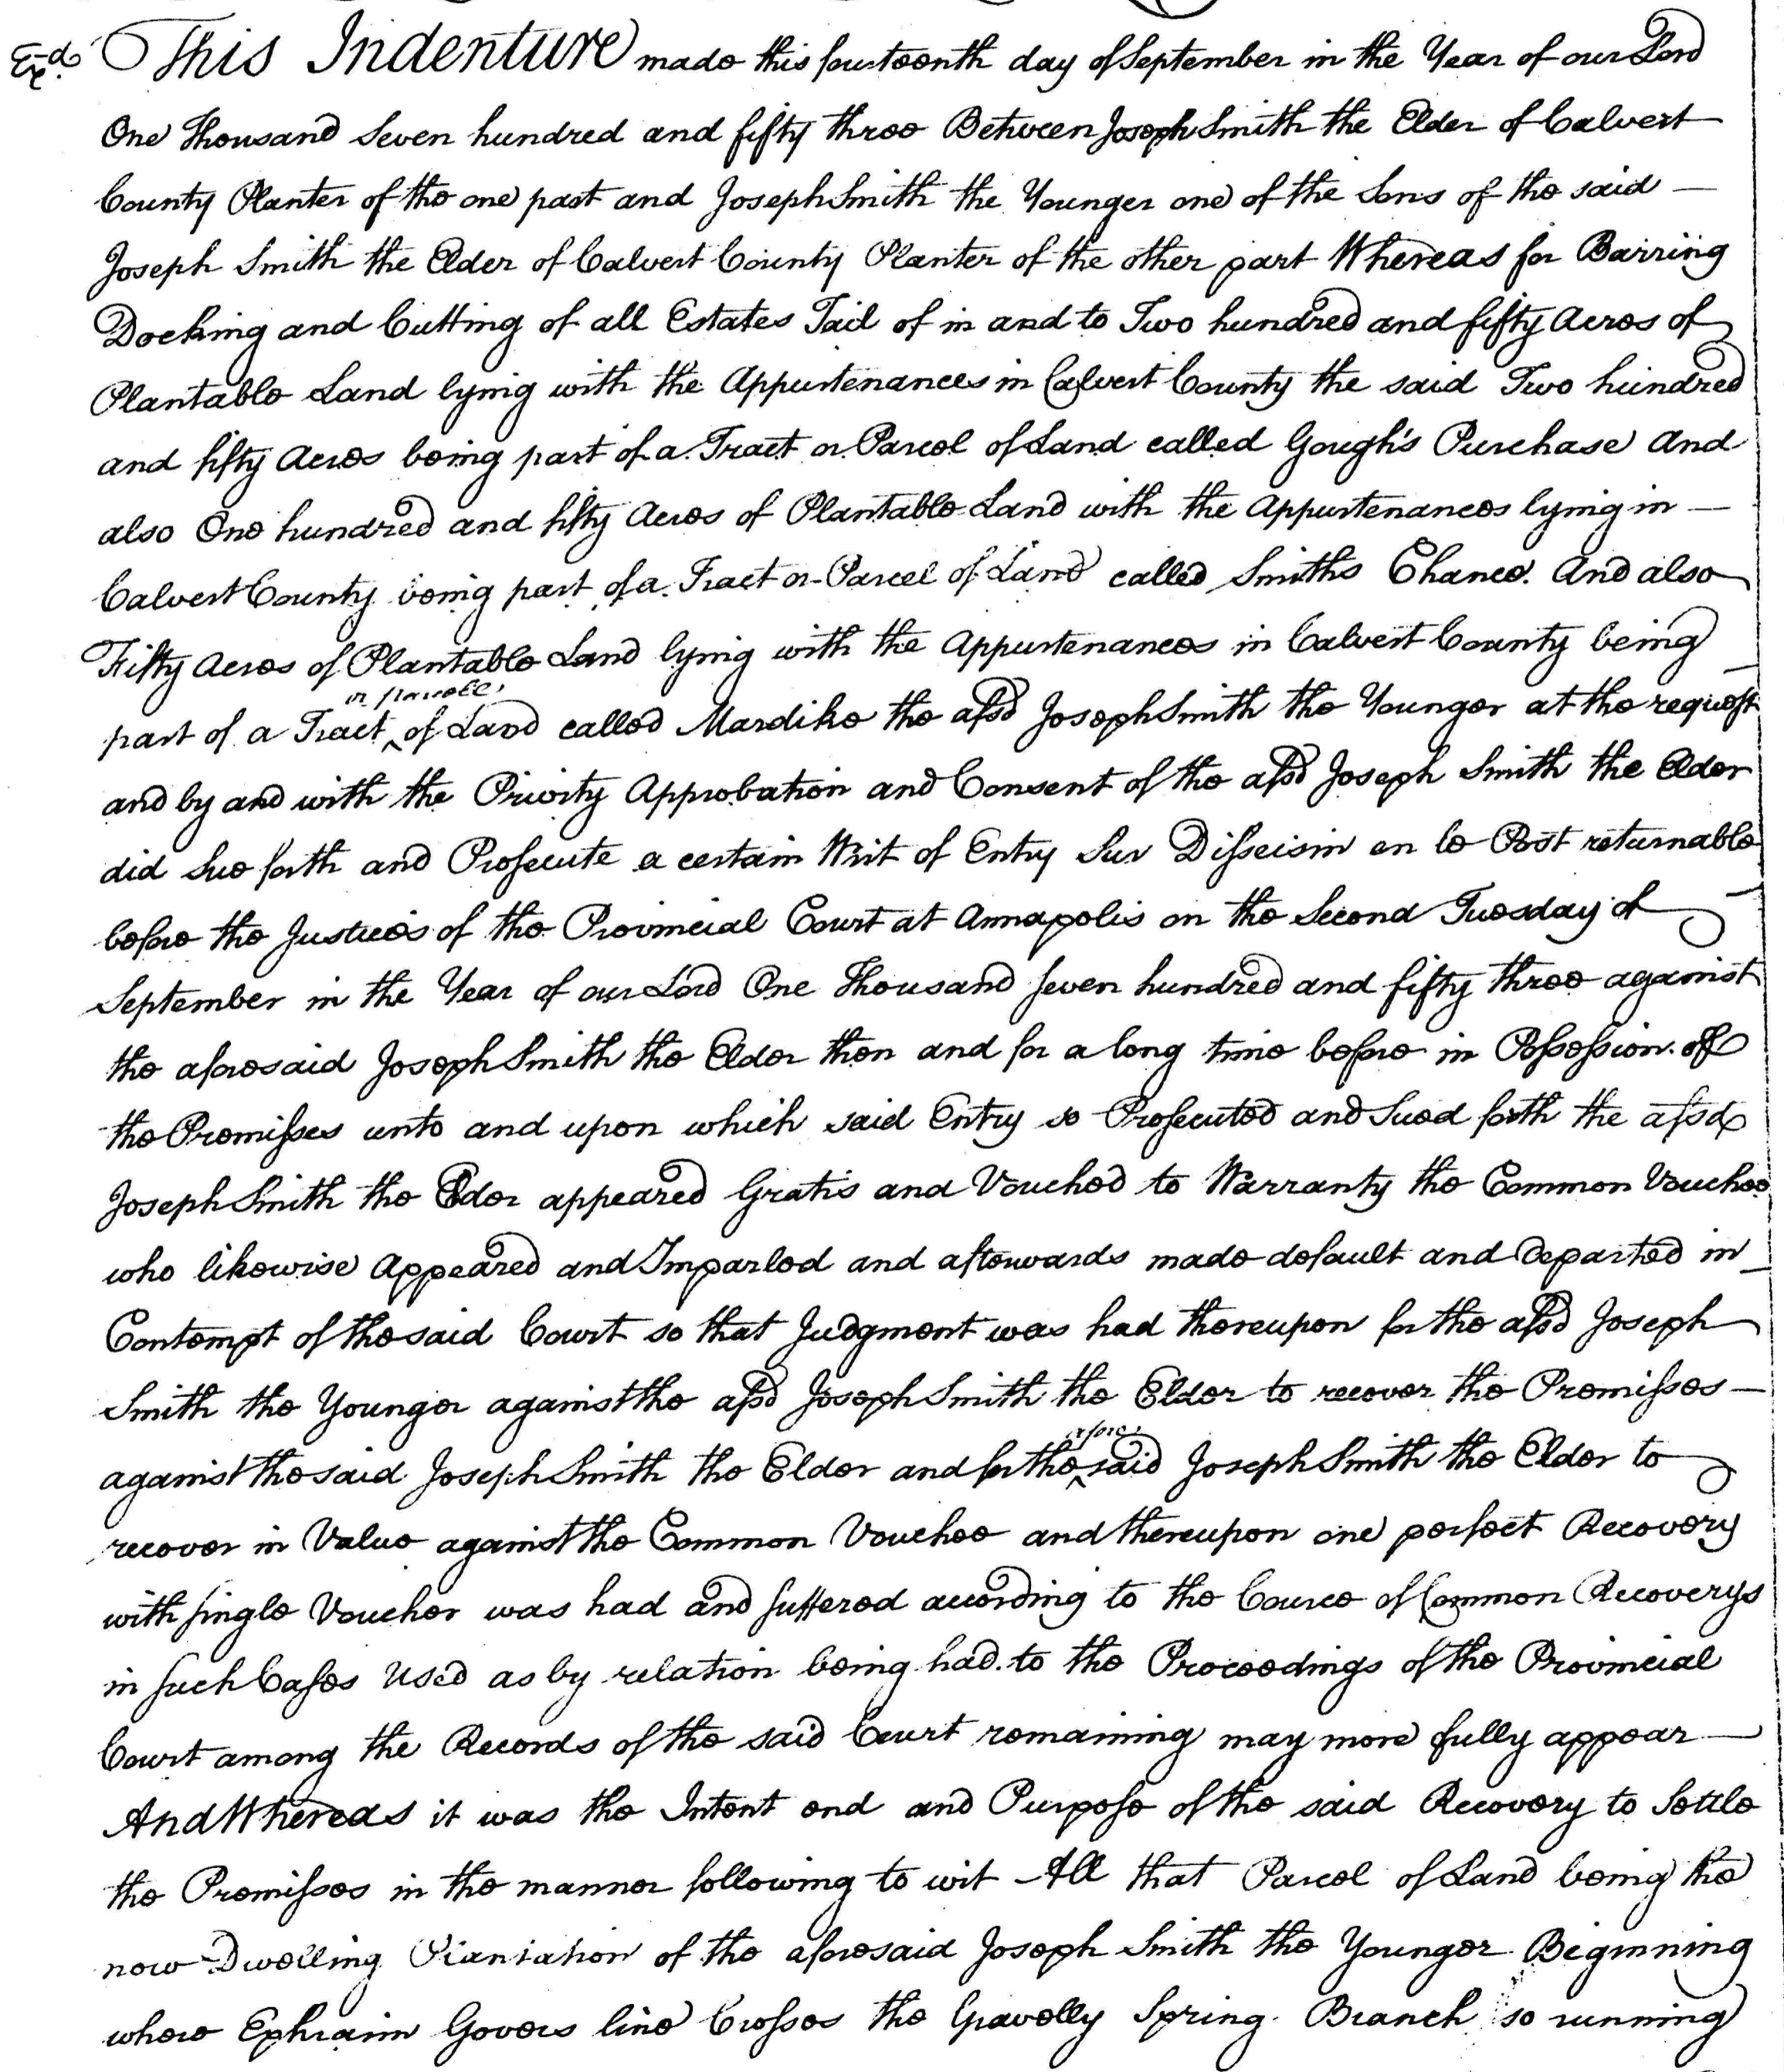 Exd. This Indenture made this fourteenth day of September in the Year of our Lord
One Thousand Seven hundred and fifty three Between Joseph Smith the Elder of Calvert
County Planter of the one part and Joseph Smith the Younger one of the Sons of the said —
Joseph Smith the Elder of Calvert County Planter of the other part Whereas for Barring
Docking and Cutting of all Estates Tail of in and to Two hundred and fifty Acres of
Plantable Land lying with the Appurtenances in Calvert County the said Two hundred
and fifty Acres being part of a Tract or Parcel of Land called Gough's Purchase And
also One hundred and fifty Acres of Plantable Land with the Appurtenances lying in —
Calvert County being part of a Tract or Parcel of Land called Smiths Chance. And also
Fifty Acres of Plantable Land lying with the Appurtenances in Calvert County being
part of a Tract ^or parcel of Land called Mardike the afsd Joseph Smith the Younger at the request
and by and with the Privity Approbation and Consent of the afsd Joseph Smith the Elder
did Sue forth and Prosecute a certain Writ of Entry Sur Disseisin en le Post returnable
before the Justices of the Provincial Court at Annapolis on the Second Tuesday of
September in the Year of our Lord One Thousand Seven hundred and fifty three against
the aforesaid Joseph Smith the Elder then and for a long time before in Possession of
the Premisses unto and upon which said Entry so Prosecuted and Sued forth the afsd
Joseph Smith the Elder appeared Gratis and Vouched to Warranty the Common Vouchee
who likewise Appeared and Imparled and afterwards made default and Departed in
Contempt of the said Court so that Judgment was had thereupon for the afsd Joseph
Smith the Younger against the afsd Joseph Smith the Elder to recover the Premisses —
against the said Joseph Smith the Elder and for the ^afore said Joseph Smith the Elder to
recover in Value against the Common Vouchee and thereupon one perfect Recovery
with single Voucher was had and suffered according to the Cource of Common Recoverys
in such Cases Used as by relation being had to the Proceedings of the Provincial
Court among the Records of the said Court remaining may more fully appear —
And Whereas it was the Intent end and Purpose of the said Recovery to Settle
the Premisses in the manner following to wit All that Parcel of Land being the
now Dwelling Plantation of the aforesaid Joseph Smith the Younger Beginning
where Ephraim Govers line Crosses the Gravelly Spring Branch so running